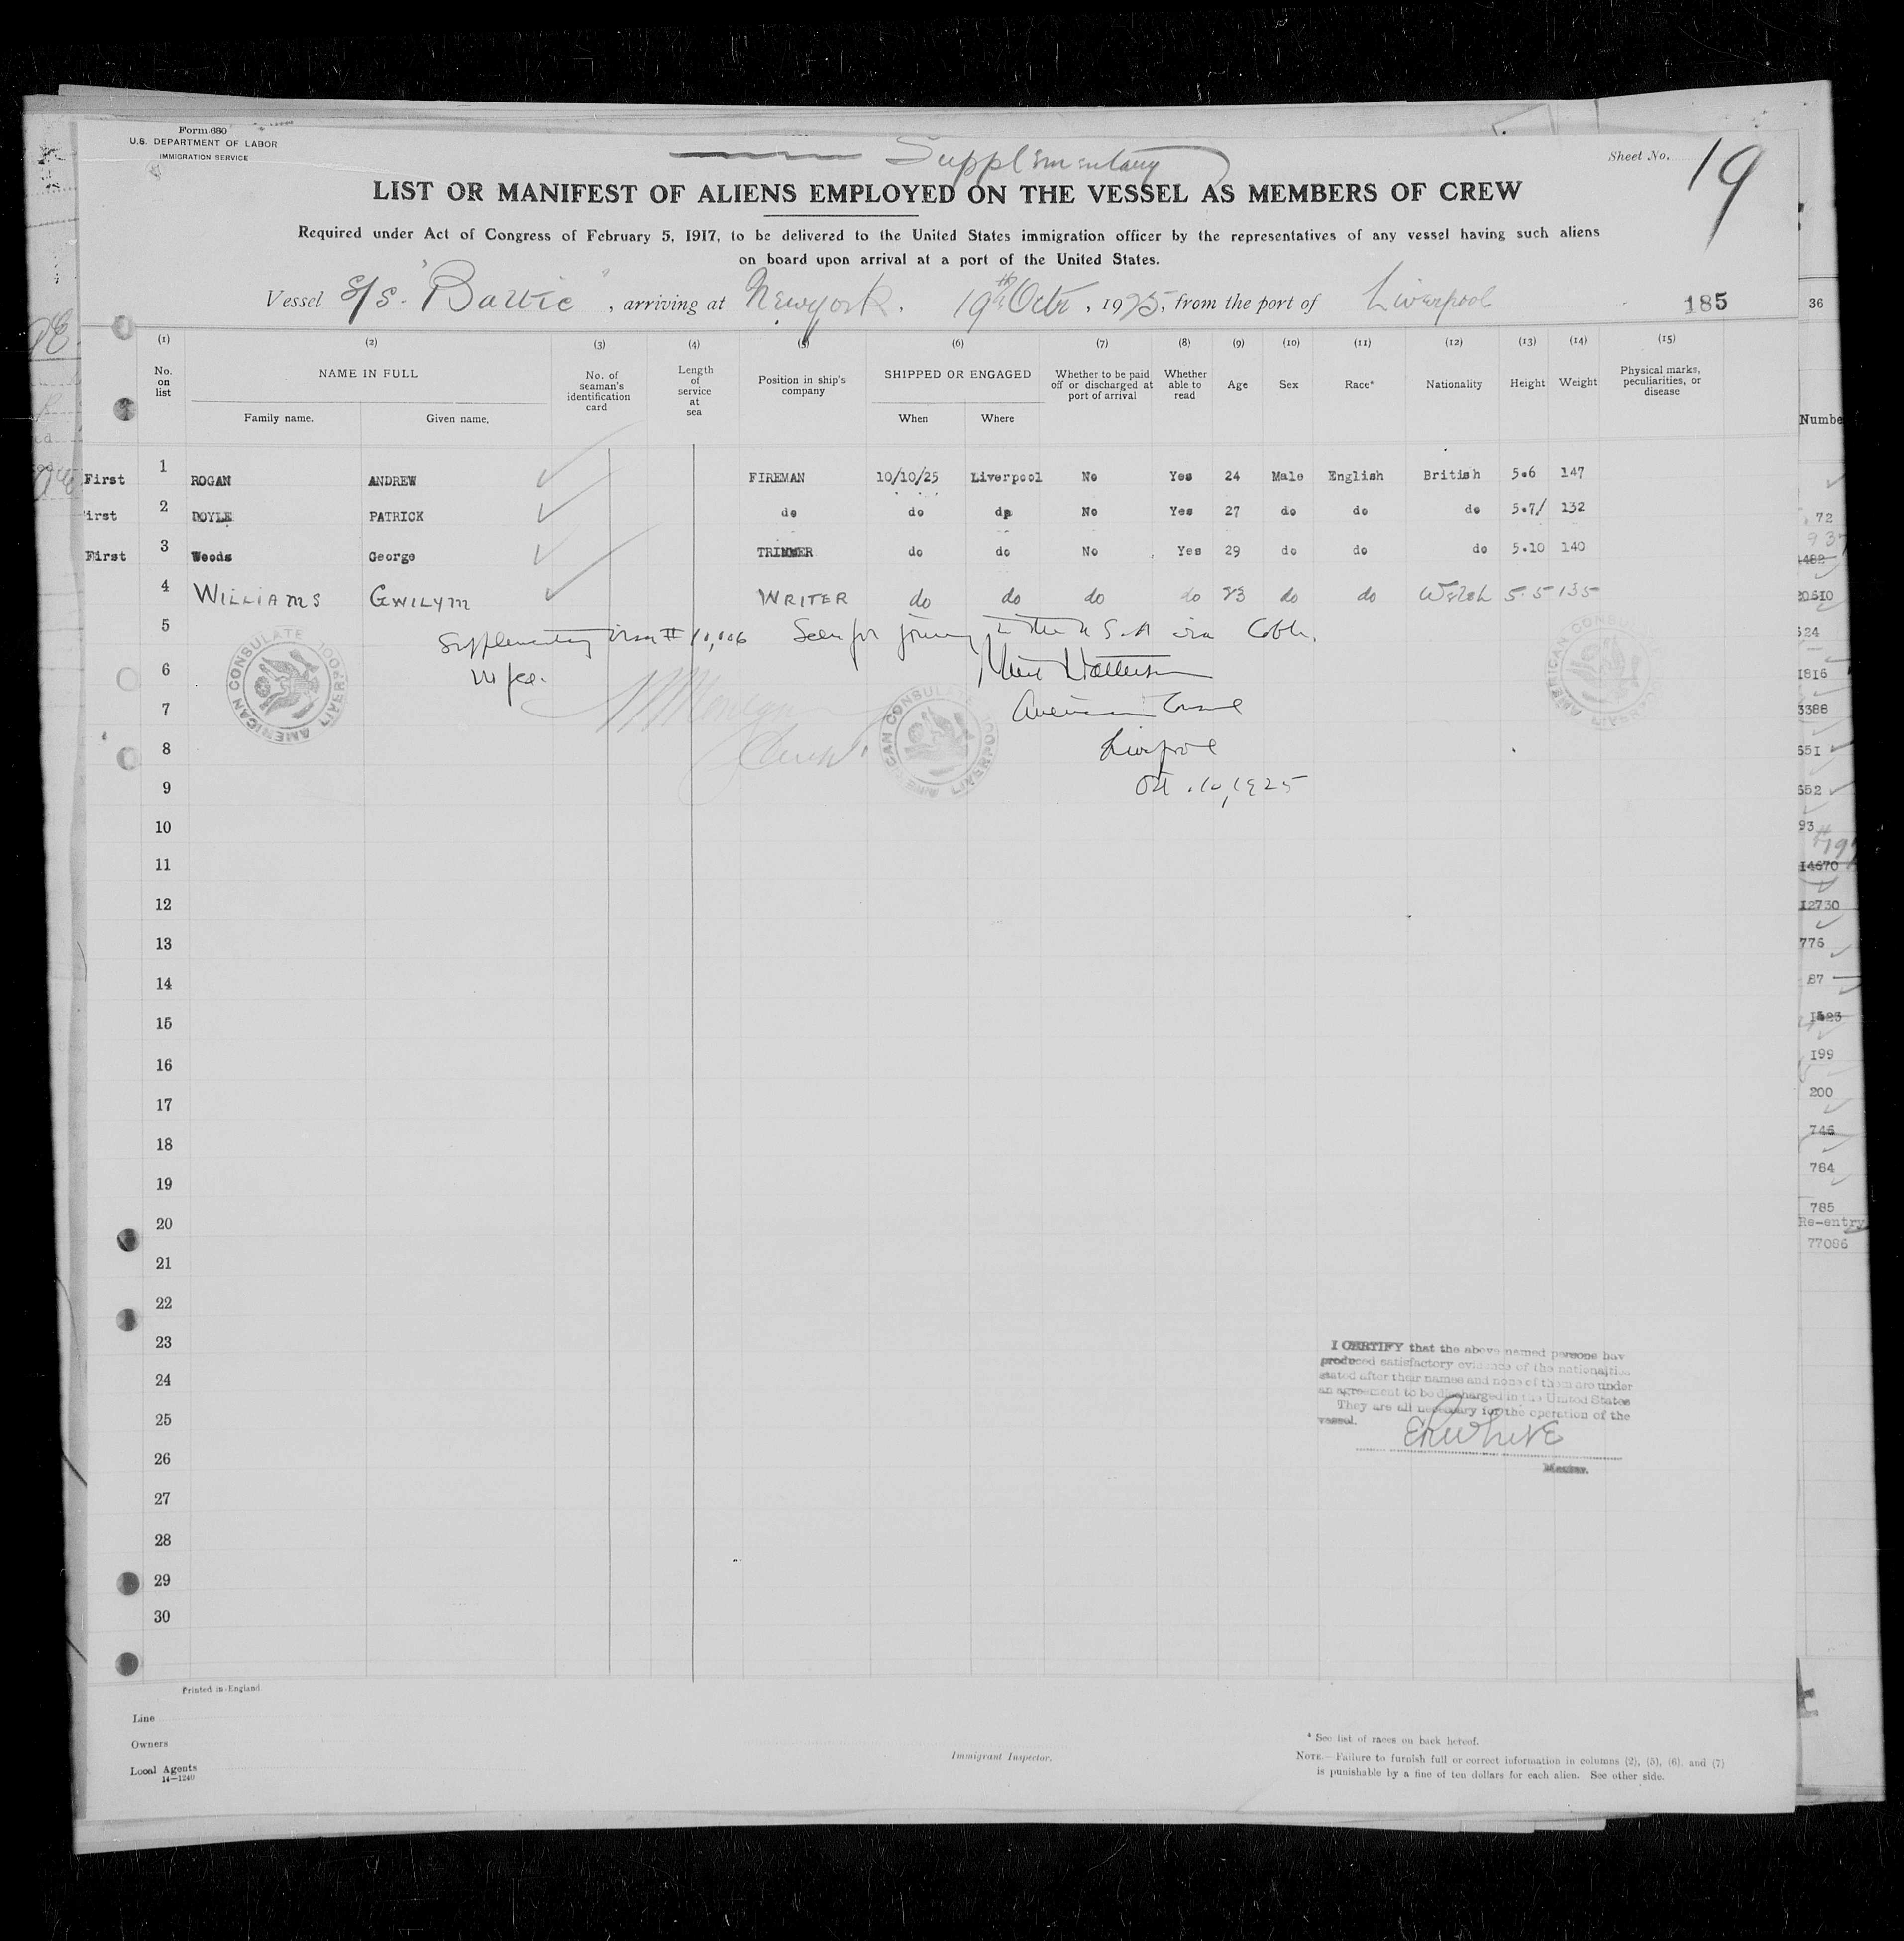 Form 680
U.S. DEPARTMENT OF LABOR
IMMIGRATION SERVICE
Supplementary
Sheet No. 19
LIST OR MANIFEST OF ALIENS EMPLOYED ON THE VESSEL AS MEMBERS OF CREW
Required under Act of Congress of February 5, 1917, to be delivered to the United States immigration officer by the representatives of any vessel having such aliens
on board upon arrival at a port of the United States.
Vessel S/S. "Baltic", arriving at New York, 19th Octr, 1925, from the port of Liverpool
185
36
(1) (2) (3) (4) (5) (6) (7) (8) (9) (10) (11) (12) (13) (14) (15)
No. on list NAME IN FULL Family name. Given name. No. of seaman's identification card Length of service at sea Position in ship's company SHIPPED OR ENGAGED When Where Whether to be paid off or discharged at port of arrival Whether able to read Age Sex Race* Nationality Height Weight Physical marks, peculiarities, or disease
First 1 ROGAN ANDREW FIREMAN 10/10/25 Liverpool No Yes 24 Male English British 5.6 147
irst 2 DOYLE PATRICK do do do No Yes 27 do do do 5.7/ 132
First 3 Woods George TRIMMER do do No Yes 29 do do do 5.10 140
4 WILLIAMS GWILYM WRITER do do do do 23 do do Welsh 5.5 135
5 Supplementary visa # 10,006 Seen for journey to the U.S.A via Cobh.
6 No fee.
7 American Consul
8 Liverpool
9 Oct. 10, 1925
AMERICAN CONSULATE LIVERPOOL
AMERICAN CONSULATE LIVERPOOL
AMERICAN CONSULATE
10
11
12
13
14
15
16
17
18
19
20
21
22
23
24
25
26
27
28
29
30
I CERTIFY that the above named persons hav
produced satisfactory evidence of the nationaliti
stated after their names and none of them are under
an agreement to be discharged in the United States
They are all necessary for the operation of the
vessel.
ERWhite
Master.
Number
72
937
1482
20510
524
1816
3388
651
652
93
14670
12730
776
87
199
200
746
764
785
Re-entry
77086
Printed in England.
Line
Owners
Local Agents
14—1240
Immigrant Inspector.
* See list of races on back hereof.
NOTE.—Failure to furnish full or correct information in columns (2), (5), (6), and (7)
is punishable by a fine of ten dollars for each alien. See other side.